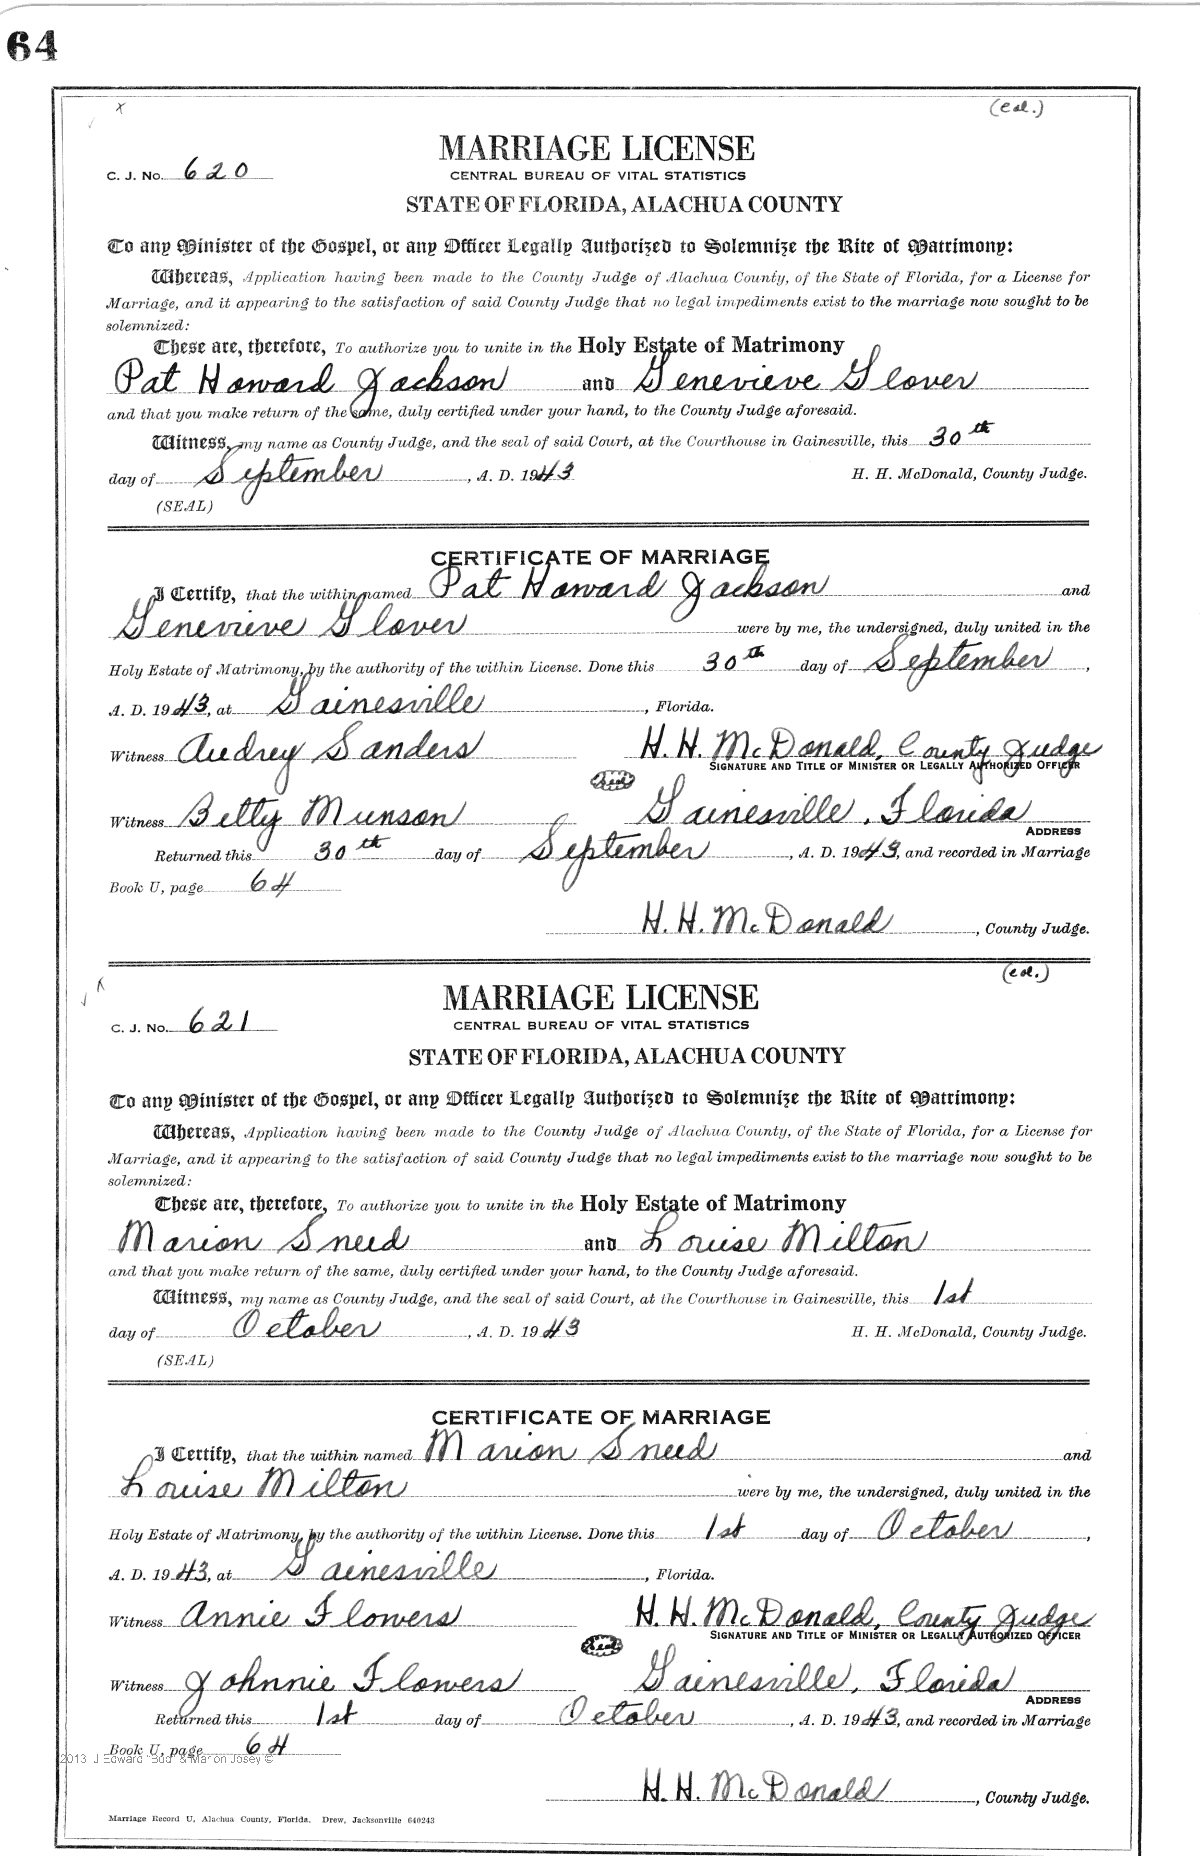 64
(Col.)
MARRIAGE LICENSE
C. J. No. 620
CENTRAL BUREAU OF VITAL STATISTICS
STATE OF FLORIDA, ALACHUA COUNTY
To any Minister of the Gospel, or any Officer Legally Authorized to Solemnize the Rite of Matrimony:
Whereas, Application having been made to the County Judge of Alachua County, of the State of Florida, for a License for
Marriage, and it appearing to the satisfaction of said County Judge that no legal impediments exist to the marriage now sought to be
solemnized:
These are, therefore, To authorize you to unite in the Holy Estate of Matrimony
Pat Howard Jackson and Genevieve Glover
and that you make return of the same, duly certified under your hand, to the County Judge aforesaid.
Witness, my name as County Judge, and the seal of said Court, at the Courthouse in Gainesville, this 30th
day of September, A. D. 1943 H. H. McDonald, County Judge.
(SEAL)
CERTIFICATE OF MARRIAGE
I Certify, that the within named Pat Howard Jackson and
Genevieve Glover were by me, the undersigned, duly united in the
Holy Estate of Matrimony, by the authority of the within License. Done this 30th day of September,
A. D. 1943, at Gainesville, Florida.
Witness Audrey Sanders H. H. McDonald, County Judge
SIGNATURE AND TITLE OF MINISTER OR LEGALLY AUTHORIZED OFFICER
Seal
Witness Betty Munson Gainesville, Florida
ADDRESS
Returned this 30th day of September, A. D. 1943, and recorded in Marriage
Book U, page 64
H. H. McDonald, County Judge.
(Col.)
MARRIAGE LICENSE
C. J. No. 621
CENTRAL BUREAU OF VITAL STATISTICS
STATE OF FLORIDA, ALACHUA COUNTY
To any Minister of the Gospel, or any Officer Legally Authorized to Solemnize the Rite of Matrimony:
Whereas, Application having been made to the County Judge of Alachua County, of the State of Florida, for a License for
Marriage, and it appearing to the satisfaction of said County Judge that no legal impediments exist to the marriage now sought to be
solemnized:
These are, therefore, To authorize you to unite in the Holy Estate of Matrimony
Marion Sneed and Louise Milton
and that you make return of the same, duly certified under your hand, to the County Judge aforesaid.
Witness, my name as County Judge, and the seal of said Court, at the Courthouse in Gainesville, this 1st
day of October, A. D. 1943 H. H. McDonald, County Judge.
(SEAL)
CERTIFICATE OF MARRIAGE
I Certify, that the within named Marion Sneed and
Louise Milton were by me, the undersigned, duly united in the
Holy Estate of Matrimony, by the authority of the within License. Done this 1st day of October,
A. D. 1943, at Gainesville, Florida.
Witness Annie Flowers H. H. McDonald, County Judge
SIGNATURE AND TITLE OF MINISTER OR LEGALLY AUTHORIZED OFFICER
Seal
Witness Johnnie Flowers Gainesville, Florida
ADDRESS
Returned this 1st day of October, A. D. 1943, and recorded in Marriage
Book U, page 64
2013 J Edward "Bud" & Marion Josey ©
H. H. McDonald, County Judge.
Marriage Record U, Alachua County, Florida. Drew, Jacksonville 640243